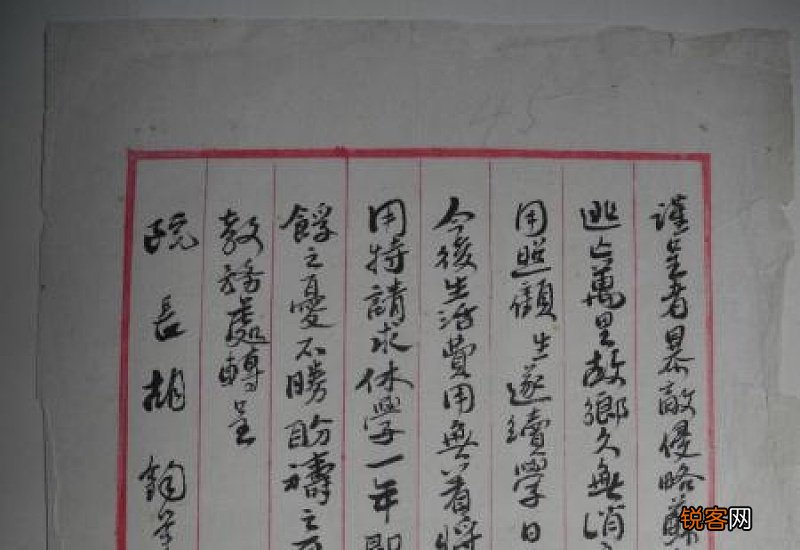 謹呈者暴敵侵略蘇
逃亡萬里故鄉久無消
用照顧生遂續學日
今後生活費用無著將
用特請求休學一年即
餒之憂不勝盼禱之至
教務處轉呈
院長胡鈞
锐客网